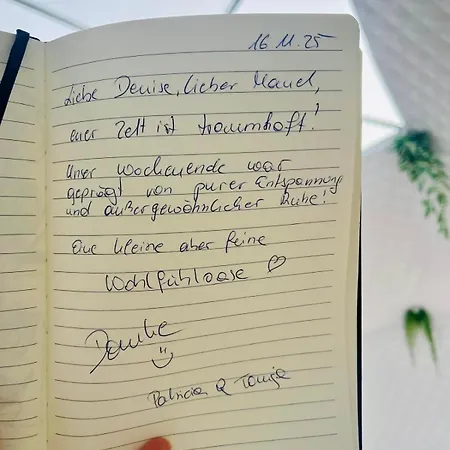 16.11.25
Liebe Denise, lieber Manel,
euer Zelt ist traumhaft!
Unser Wochenende war
geprägt von purer Entspannung
und außergewöhnlicher Ruhe!
Eine kleine aber feine
Wohlfühloase ♡
Danke
Patricia & Tanja